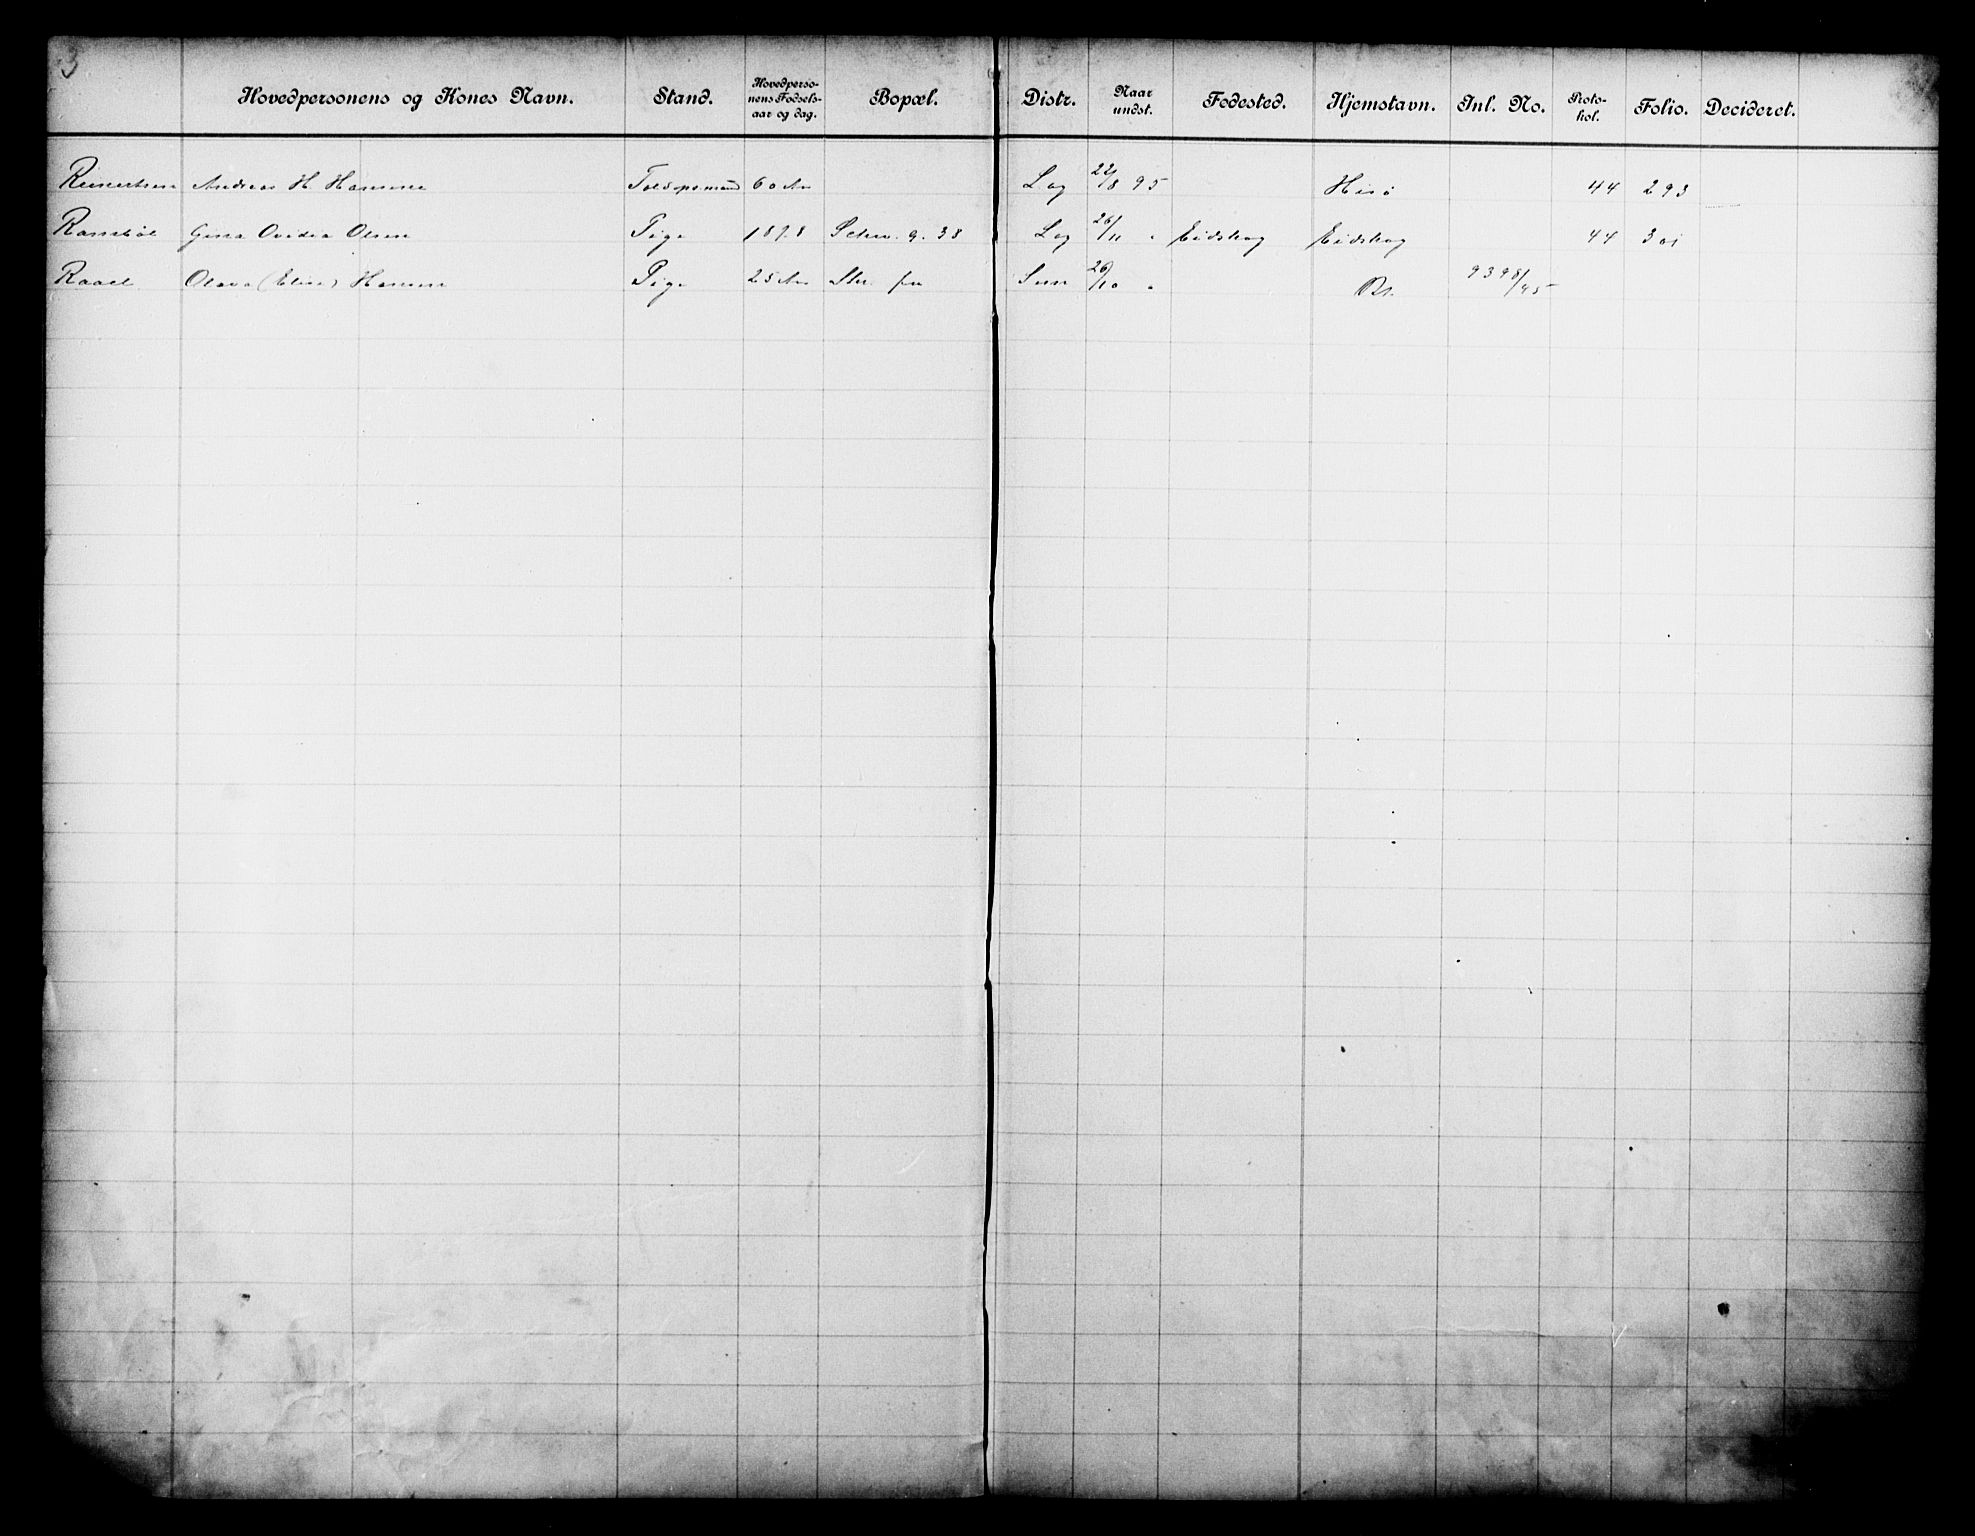 3
Hovedpersonens og Kones Navn. Stand. Hovedperso-nens Fødsels-aar og dag. Bopæl. Distr. Naar undst. Fødested. Hjemstavn. Inl. No. Proto-kol. Folio. Decideret.
Reinertsen Andreas H Hansen 60 Aar Lag 22/8 95 Hisø 44 293
Ramsöl Gina Ovidia Olsen Pige 1878 Schw. g. 38 Lag 26/11 " Eidskog Eidskog 44 301
Raael Olava (Elise) Hansen Pige 25 Aar 26/10 " 9398/95